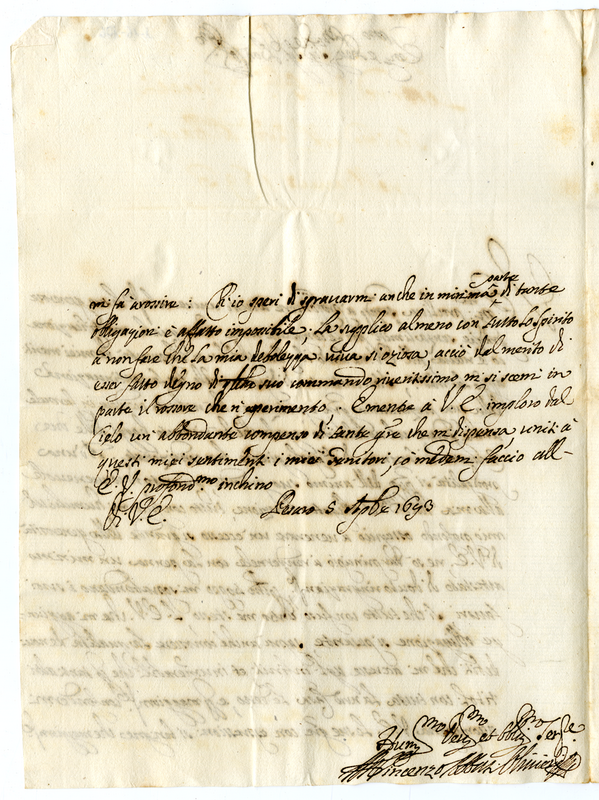 mi fà arossire: Ch'io speri di sgravarmi anche in minima parte di tante
obligazioni è affatto impossibile, La supplico almeno con tutto lo spirito
à non fare che la mia debolezza viva si oziosa, acciò del merito di
esser fatto degno di suo commando riveritissimo mi si scemi in
parte il rossore che n'esperimento. E mentre à V. E. imploro dal
Cielo un' abbondante compenso di tante che mi dispensa, uniti à
questi miei sentimenti i miei Genitori, io medem faccio all-
E. V. profond.mo inchino
Di V. E.
Pesaro 5 1693
Hum.mo et Serre
Vincenzo Olivieri